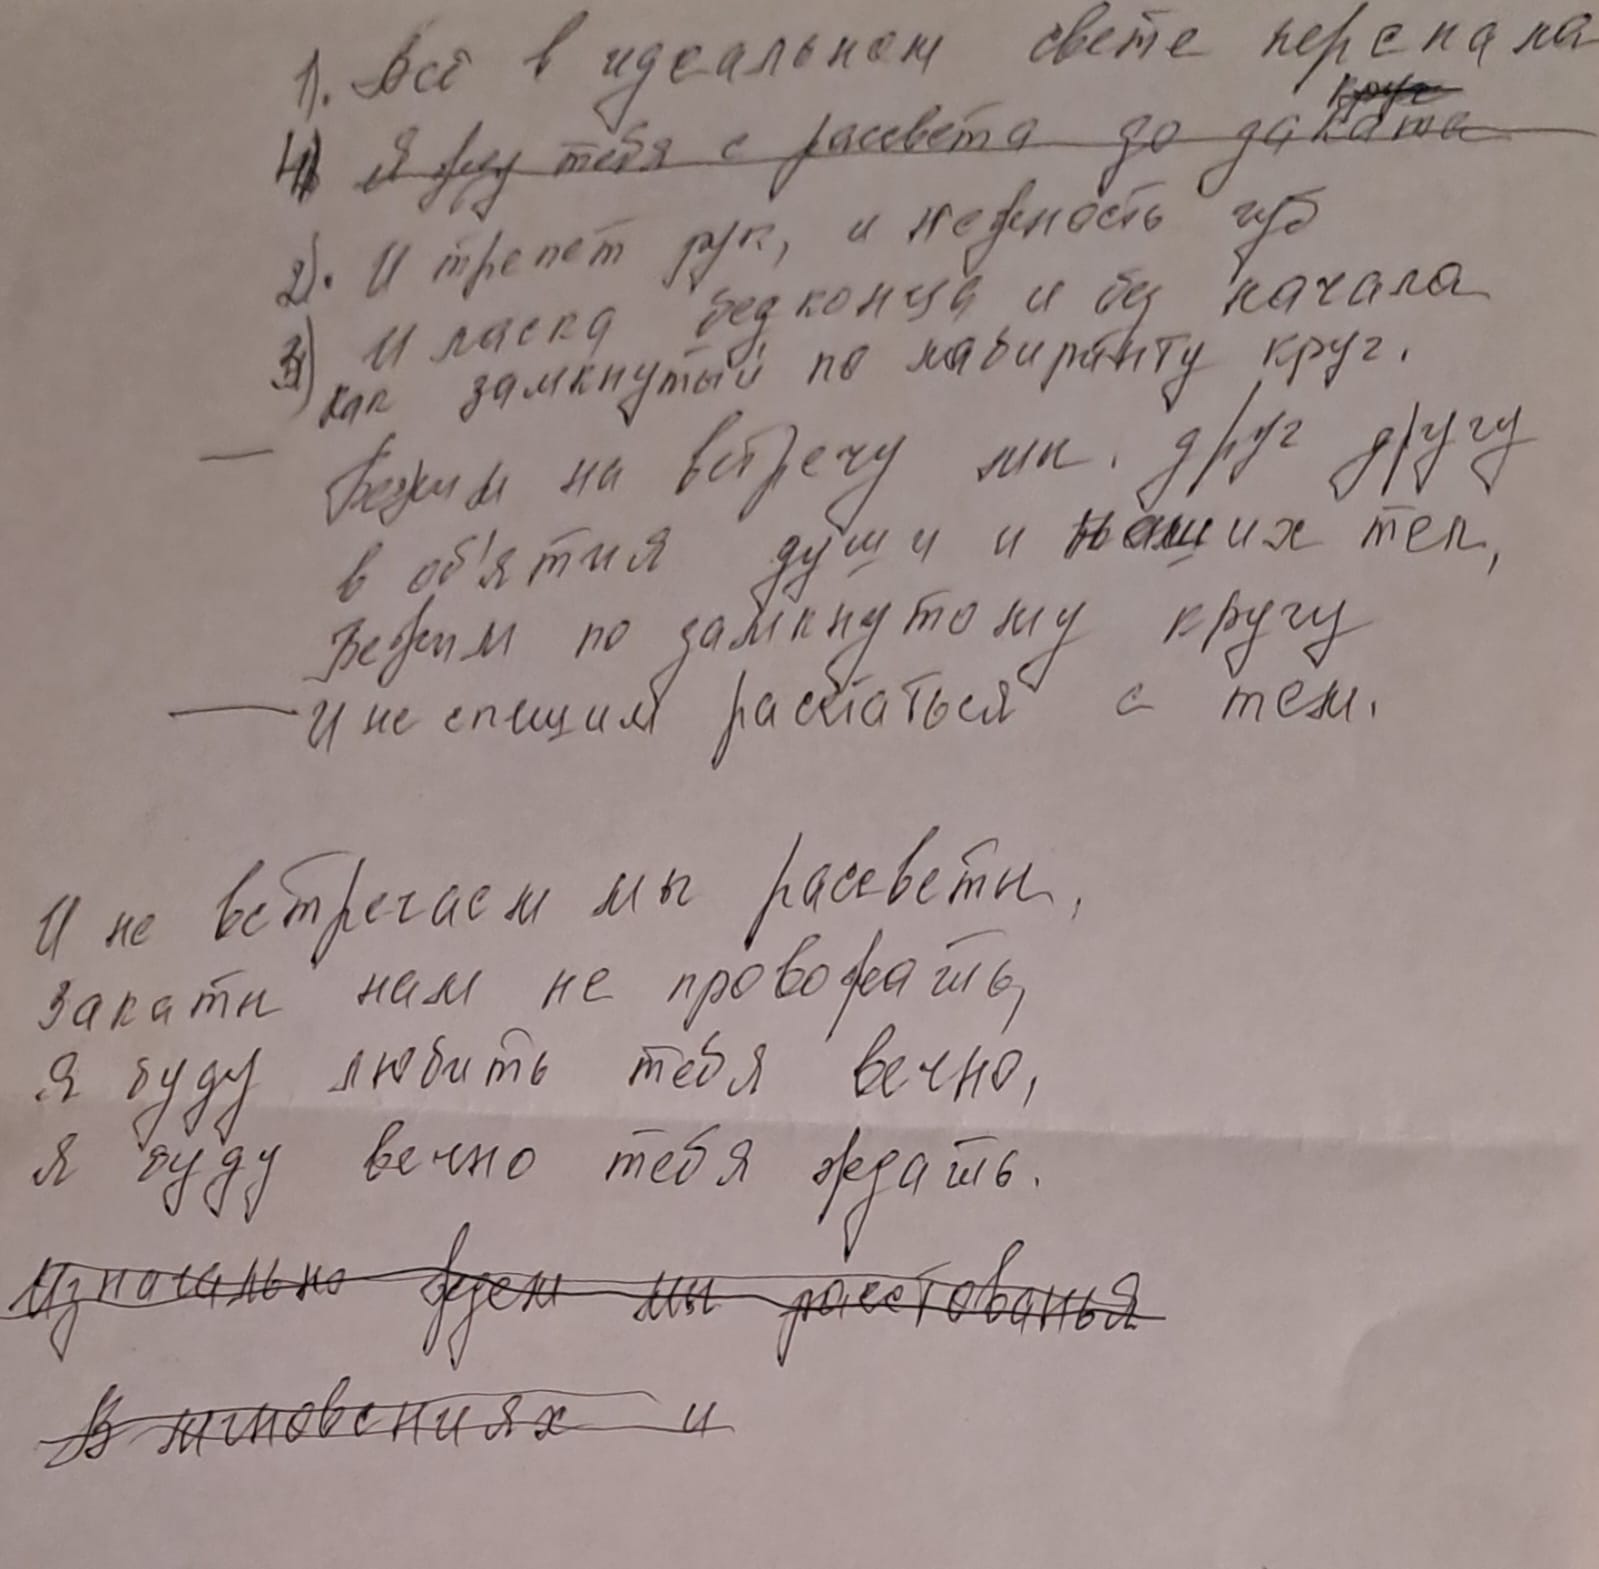 1). Всё в идеальном свете
круг
4) Я жду тебя с рассвета до заката
2). И трепет рук, и нежность губ
3) И ласка без конца и без начала
как замкнутый по лабиринту круг.
— Бежим на встречу мы. друг другу
в об'ятия души и наших тел,
Бежим по замкнутому кругу
— И не спешим расстаться с тем.
И не встречаем мы рассветы,
Закаты нам не провожать,
Я буду любить тебя вечно,
Я буду вечно тебя ждать.
Изначально ждем мы расстованья
В мгновениях и